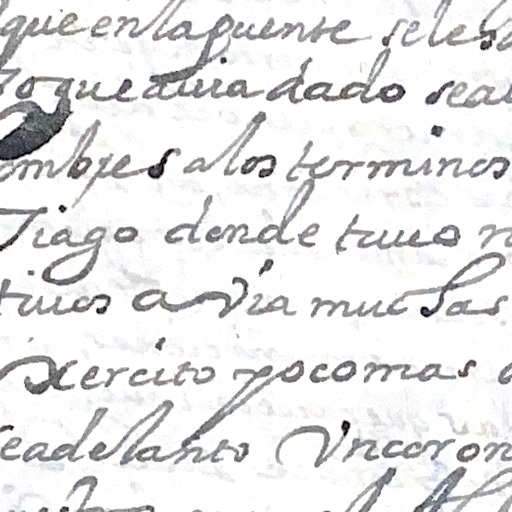 que en la puente se les
to que avia dado sea
ombres a los terminos
Tiago donde tuuo n
tiuos avia muchas
xercito poco mas
se adelanto Vn coron